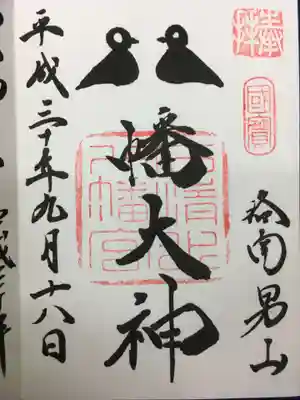 奉拝
國寶
洛南男山
幡大神
石清水
八幡宮
平成三十年九月十八日